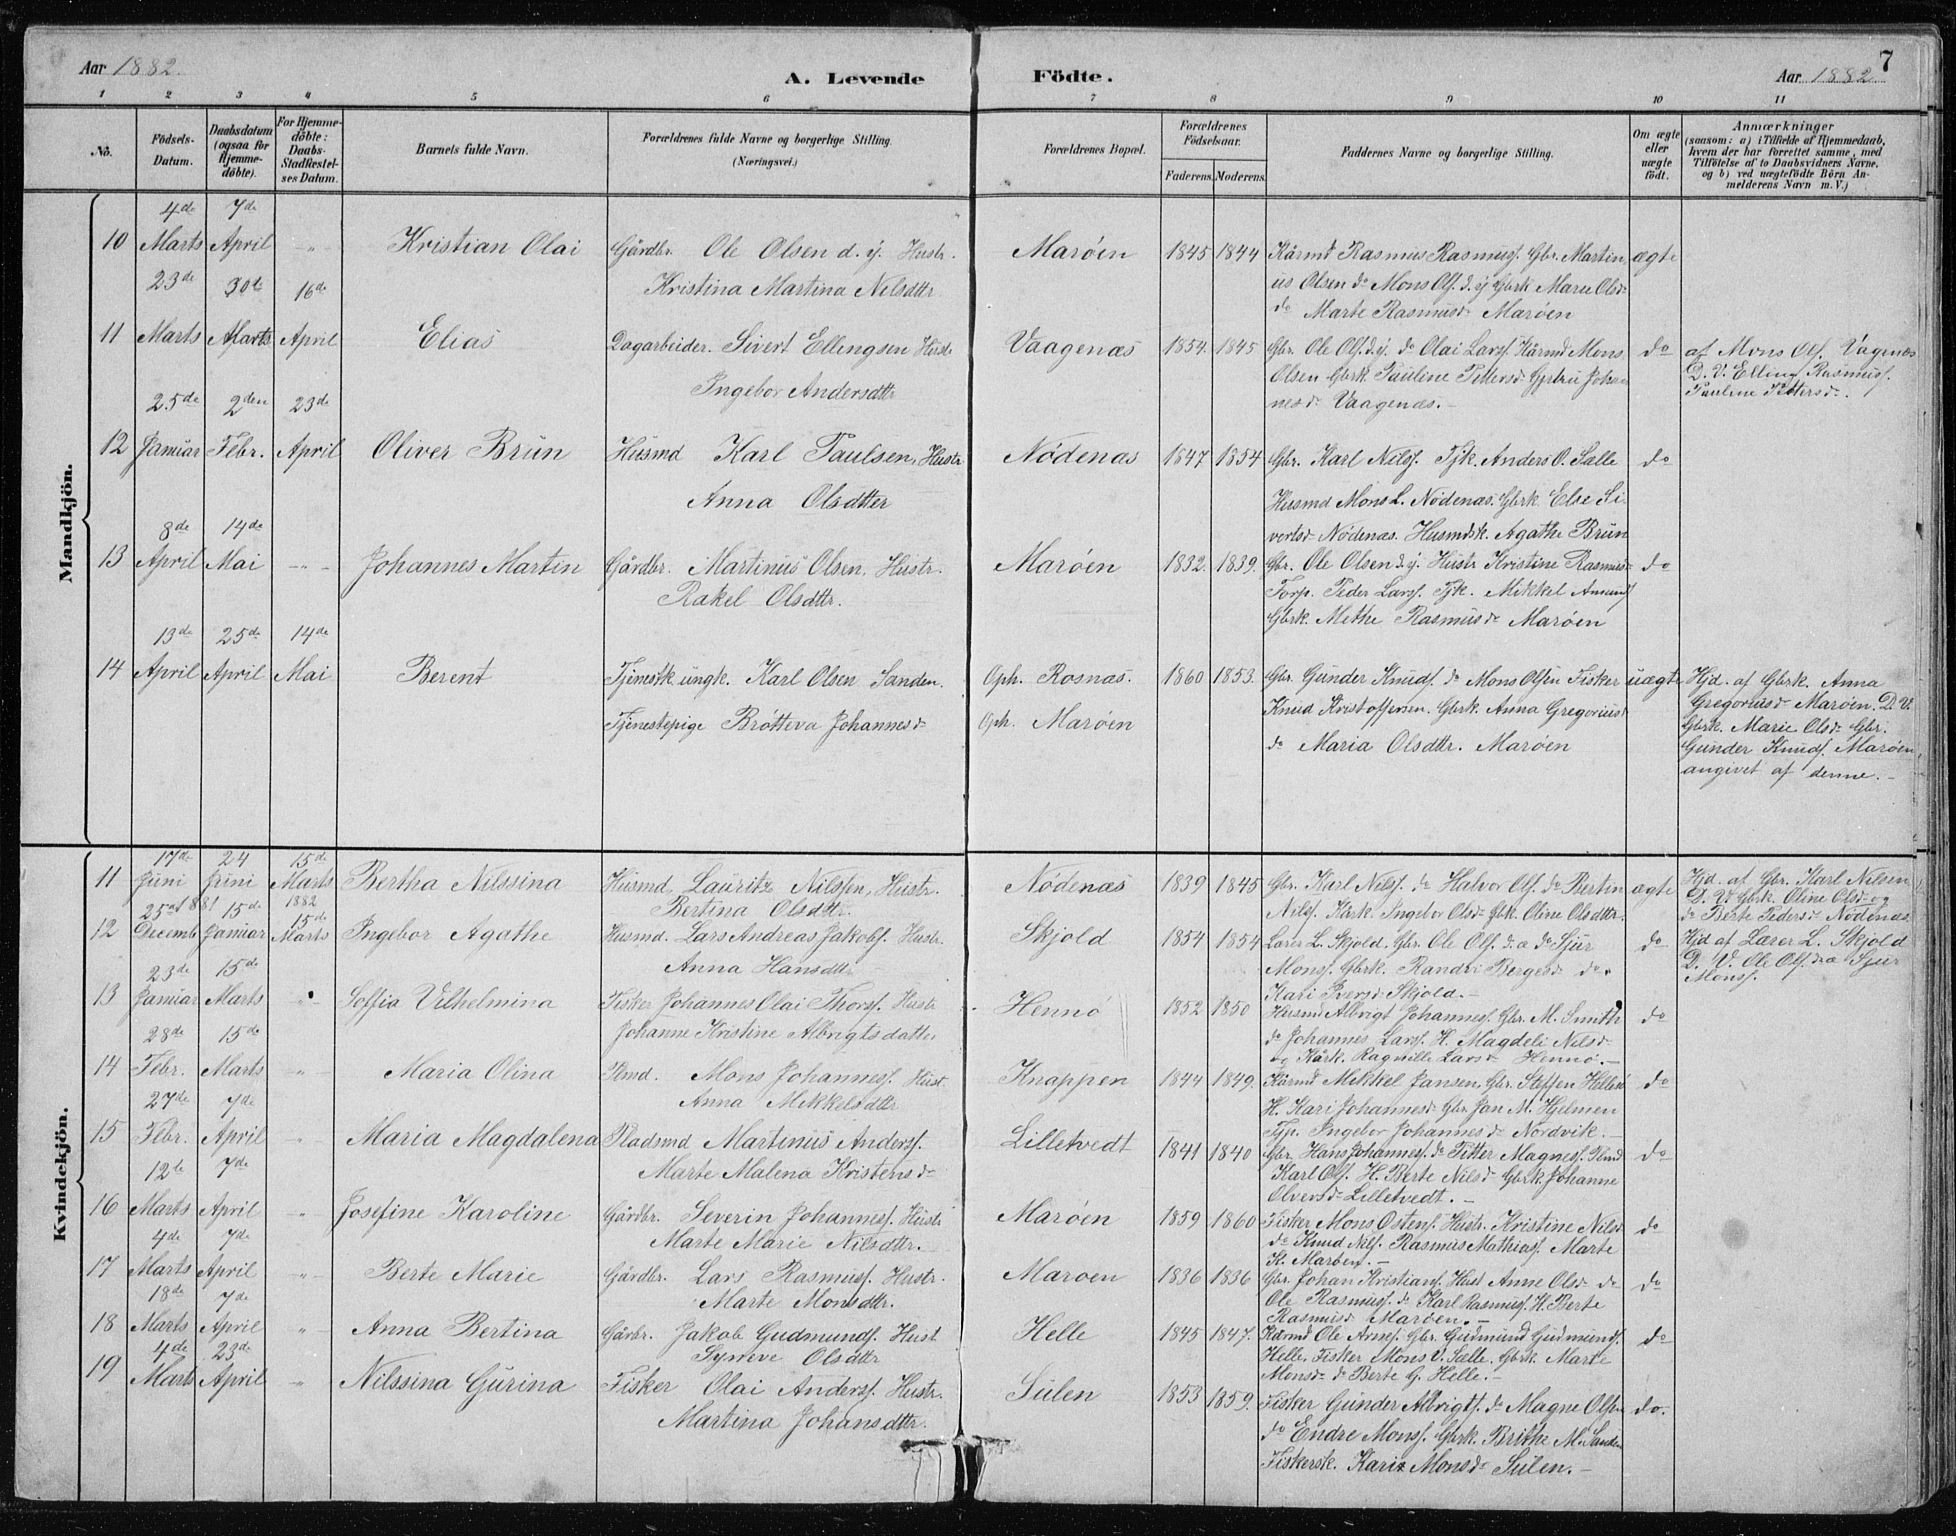 Aar 1882.
A. Levende Födte.
Aar 1882
7
1 2 3 4 5 6 7 8 9 10 11
No.
Födsels-Datum.
Daabsdatum (ogsaa for Hjemme-döbte).
For Hjemme-döbte: Daabs-Stadfæstel-ses Datum.
Barnets fulde Navn.
Forældrenes fulde Navne og borgerlige Stilling. (Næringsvei.)
Forældrenes Bopæl.
Forældrenes Födselsaar.
Faderens. Moderens.
Faddernes Navne og borgerlige Stilling.
Om ægte eller uægte födt.
Anmærkninger
(saasom: a) i Tilfælde af Hjemmedaab,
hvem der har forrettet samme, med
Tilföielse af to Daabsvidners Navne,
og b) ved uægtefödte Börn An-
melderens Navn m. V.)
Mandkjön.
4de 7de
10 Marts April -"- Kristian Olai Gårdbr. Ole Olsen d. y. Hustr. Marøen 1845 1844 Kårmd Rasmus Rasmuss. Gbr. Martin ægte
Kristina Martina Nilsdttr. us Olsen do Mons Ols. d. y Gbrk Marie Olsd
do Marte Rasmusd Marøen
23de 30te 16de
11 Marts Marts April Elias Dagarbeider. Sivert Ellingsen Hustr Vaagenæs 1854. 1845 Gbr. Ole Ols. d. y. do Olai Larss. Kårmd Mons do af Mons Ols. Vagenæs
Ingebor Andersdttr Olsen Gbrk. Pauline Pettersd Johan D. V. Elling Rasmuss.
nesd Vaagenæs.- Pauline Pettersd.
25de 2den 23de
12 Januar Febr. April Oliver Brun Husmd Karl Paulsen, Hustr Nødenæs 1847 1854 Gbr. Karl Nilss. Tjk. Anders O. Sælle do
Anna Olsdtter Husmd Mons L. Nødenæs. Gbrk Else Si
vertsd Nødenæs. Husmdsk. Agathe Brun
8de 14de
13 April Mai -"- Johannes Martin Gårdbr. Martinus Olsen, Hustr. Marøen 1832. 1839. Gbr. Ole Olsen d. y. Hustr Kristine Rasmus- do
Rakel Olsdttr. Torp. Peder Larss. Tjk. Mikkel Amunds
Gbrk. Methe Rasmusd Marøen
13de 25de 14de
14 April April Mai Berent Tjenestk ungk. Karl Olsen Sanden. Oph. Rosnæs. 1860 1853. Gbr. Gunder Knuds. do Mons Olsen Fisker uægte Hjd. af Gbrk. Anna
Tjenestepige Brøtteva Johannesd Oph. Marøen Knud Kristoffersen. Gbrk. Anna Gregoriusd Gregoriusd Marøen. D. V.
do Maria Olsdttr. Marøen Gbrk. Marie Olsd Gbr.
Gunder Knuds. Marøen
angivet af denne.-
Kvindekjön.
17de 24 15de
11 Juni Juni Marts Bertha Nilssina Husmd, Lauritz Nilssen, Hustr. Nødenæs 1839 1845 Gbr. Karl Nilss. do Halvor Ols. do Bertin ægte Hjd. af Gbr. Karl Nilsen
1881 1882 Bertina Olsdttr. Nilss. Kårk. Ingebor Olsd Gbk. Oline Olsdttr. D. V. Gbrk. Oline Olsd og
do Berte Pedersd Nødenæs.
25de 15de 15de
12 Decemb Januar Marts Ingebor Agathe Husmd. Lars Andreas Jakobs. Hustr. Skjold 1854 1854 Lærer L. Skjold, Gbr. Ole Ols. d. æ do Sjur do Hjd af Lærer L. Skjold
Anna Hansdttr Monss. Gbrk. Randvi Bergesd do. D. V. Ole Ols. d. æ Sjur
Kari Iversd Skjold.- Monss.
23de 15de
13 Januar Marts " Soffia Vilhelmina Fisker Johannes Olai Thorss. Hustr Hennø 1852 1850 Husmd Albrigt Johanness. Gbr. M. Smith do
Johanne Kristine Albrigtsdatter do Johannes Larss. H. Magdeli Nilsd
og Kårk. Ragnille Larsd Hennø.-
28de 15de
14 Febr. Marts -"- Maria Olina Plmd. Mons Johanness. Hust. Knappen 1844 1849. Kårmd Mikkel Jansen, Gbr. Steffen Hellesø do
Anna Mikkelsdttr H. Kari Johannesd Gbr Jan M. Hjelmen
Tjp. Ingebor Johannesd Nordvik.-
27de 7de
15 Febr. April -"- Maria Magdalena Pladsmd Martinus Anderss. Lilletvedt 1841 1840 Gbr. Hans Johanness. do Petter Magness. Plmd do
Marte Malena Kristensd Karl Ols. H. Berte Nilsd Gbrk. Johanne
Olversd Lilletvedt.-
12te 7de
16 Marts April " Josefine Karoline Gårdbr. Severin Johanness. Hustr Marøen 1859 1860 Fisker Mons Ostens. Hustr. Kristine Nilsd do
Marte Marie Nilsdttr. do Knud Nilss. Rasmus Mathiass. Marte
K. Marøen.-
4de 7de
17 Marts April -"- Berte Marie Gårdbr. Lars Rasmuss. Hustr. Marøen 1836 1836 Gbr. Johan Kristians. Hust Anne Olsd do do
Marte Monsdttr. Ole Rasmuss. do Karl Rasmuss. H. Berte
Rasmusd Marøen.-
18de 7de
18 Marts April " Anna Bertina Gårbr. Jakob Gudmunds. Hust Helle 1845 1847. Kårmd Ole Arness. Gbr. Gudmund Gudmunds. do
Synneve Olsdttr Helle. Fisker Mons V. Sælle. Gbrk. Marte
Monsd do Berte G. Helle.-
4de 23de
19 Marts April " Nilssina Gurina Fisker Olai Anderss. Hustr. Sulen 1853 1859. Fisker Gunder Albrigts. do Magne Olsen do.
Martina Johansdttr. do Endre Monss. Gbrk. Brithe M. Sanden
Fiskersk. Kari Monsd Sulen.-